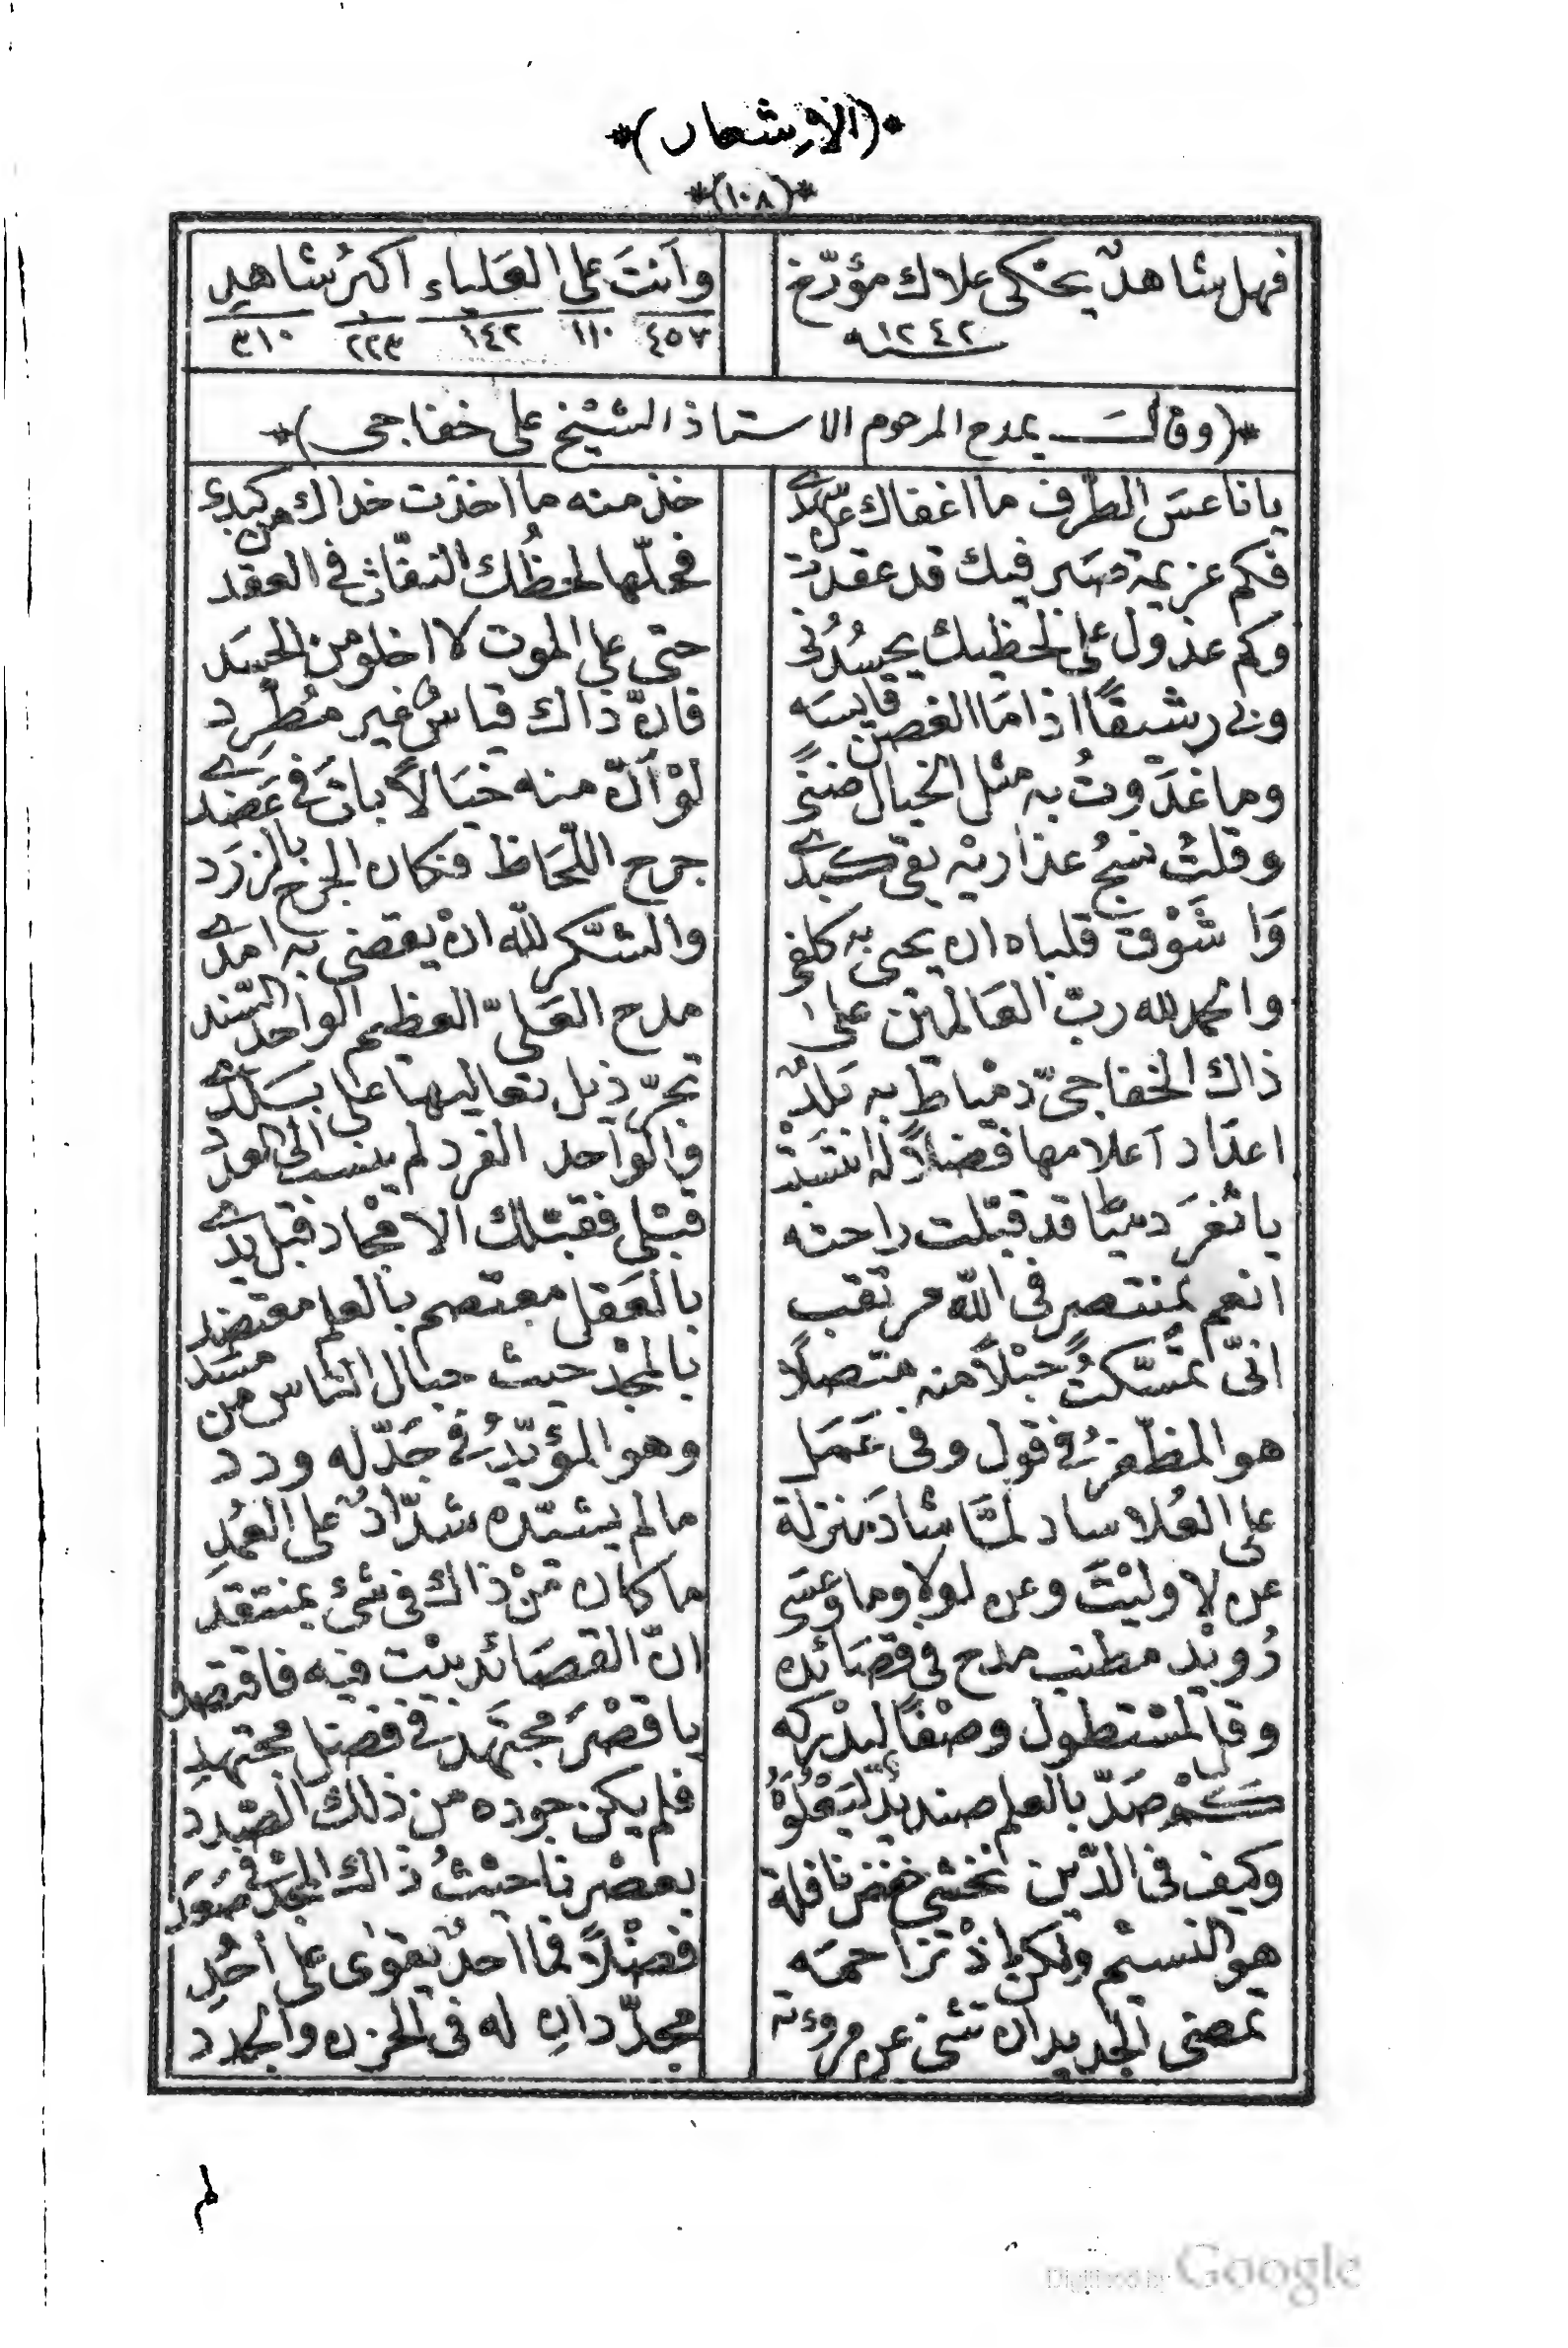 *(الاشعار)*
*(١٠٨)*
فهل شاهدٌ يحكى علاك مؤرّخ وأنتَ على العَلياء اكبرُ شاهدِ
سنة ١٢٤٢ ٤٥٧ ١١٠ ١٤٢ ٢٢٣ ٣١٠
*(وقال يمدح المرحوم الاستاذ الشيخ على خفاجى)*
يا ناعسَ الطّرف ما اغفاك عن سهدى خذ منه ما اخذت خداك من كبدى
فكم عزيمة صبر فيك قد عقدت فحلّها لحظُك النفّاث فى العقد
وكم عذول على لحظيك يحسُدُنى حتى على الموت لا اخلو من الحسَد
وبى رشيقًا اذا مَا الغصن قايسَه فانّ ذاك قياسٌ غير مُطّرِد
وما غدَوتُ به مثل الخيال ضنىً لوْ أنّ منه خيَالاً باتَ فى عَضدى
وقلتُ نسجُ عذاريْه يقى كبدى جرح اللّحَاظ فكان الجرح بالزرَد
وَا شَوْق قلباه ان يحيى به كلفى والشكر لله انْ يقضى به امدى
والحمد لله ربّ العَالمين على مدح العَلىّ العظيم الواحد السّند
ذاك الخفاجىّ دمياط به بَلدٌ تجرّ ذيل تعاليها على بَلدى
اعدَاد أعلامها فضلاً له انتسَبتْ والوَاحد الفرد لم ينسب الى العدَد
يا ثغرَ دميَاط قد قبّلت راحته قبْلى فقبّلك الامْجاد قبل يدى
انعم بمنتصر فى الله مرتقب بالعَقل معتصم بالعلم معتضد
انّى تمسّكتُ حَبْلاً منه متصلاً بالمجْد حيث حبال الناس من مسَد
هو المظفّرُ فى قول وفى عَمَل وهو المؤيّدُ فى جَدّ له ودد
على العُلا ساد لمّا شادَ منزلة ما لم يشدّه شدّادٌ على العُمُدِ
عن لا وليْتَ وعن لولا وما وعسَى ما كان مَنْ ذاك فى شئ بمنتقد
رُويْد مطنب مدح فى قصَائده انّ القصَائد بيْت فيه فاقتصد
وقا لمسْتطول وصْفًا ليدْركه يا قصْرَ مجتَهَد فى فضل مجتهدِ
كم صَدّ بالعلم صنديدًا ليَعْلُوَهُ فلم يكن جوده من ذلك الصّدد
وكيف فى الدّين نخشى خفض نافلة بعصْرنا حيْثُ ذاك المجْد فى صَعَد
هو النسيْم ولكن اذْ تزاحمَه فضْلاً فما احدٌ يقوى على احُدِ
تمضى الجديدان تثنى عن مروءته مجدّدانِ له فى الحزن والجدد
لم
Digitized by Google